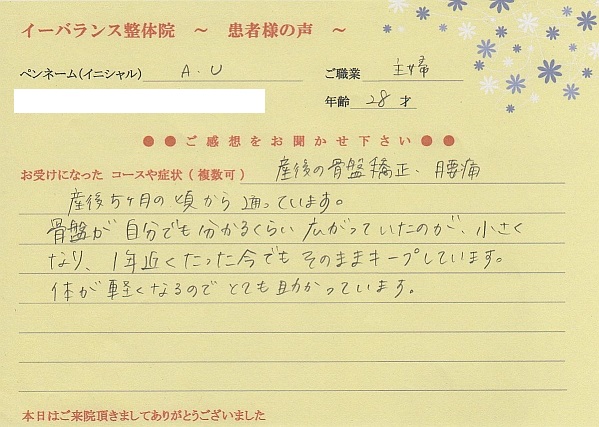 イーバランス整体院 ～ 患者様の声 ～
ペンネーム(イニシャル) A.U ご職業 主婦
年齢 28才
●●ご感想をお聞かせ下さい●●
お受けになった コースや症状(複数可) 産後の骨盤矯正、腰痛
産後5ヶ月の頃から通っています。
骨盤が自分でも分かるくらい広がっていたのが、小さく
なり、1年近くたった今でもそのままキープしています。
体が軽くなるのでとても助かっています。
本日はご来院頂きましてありがとうございました